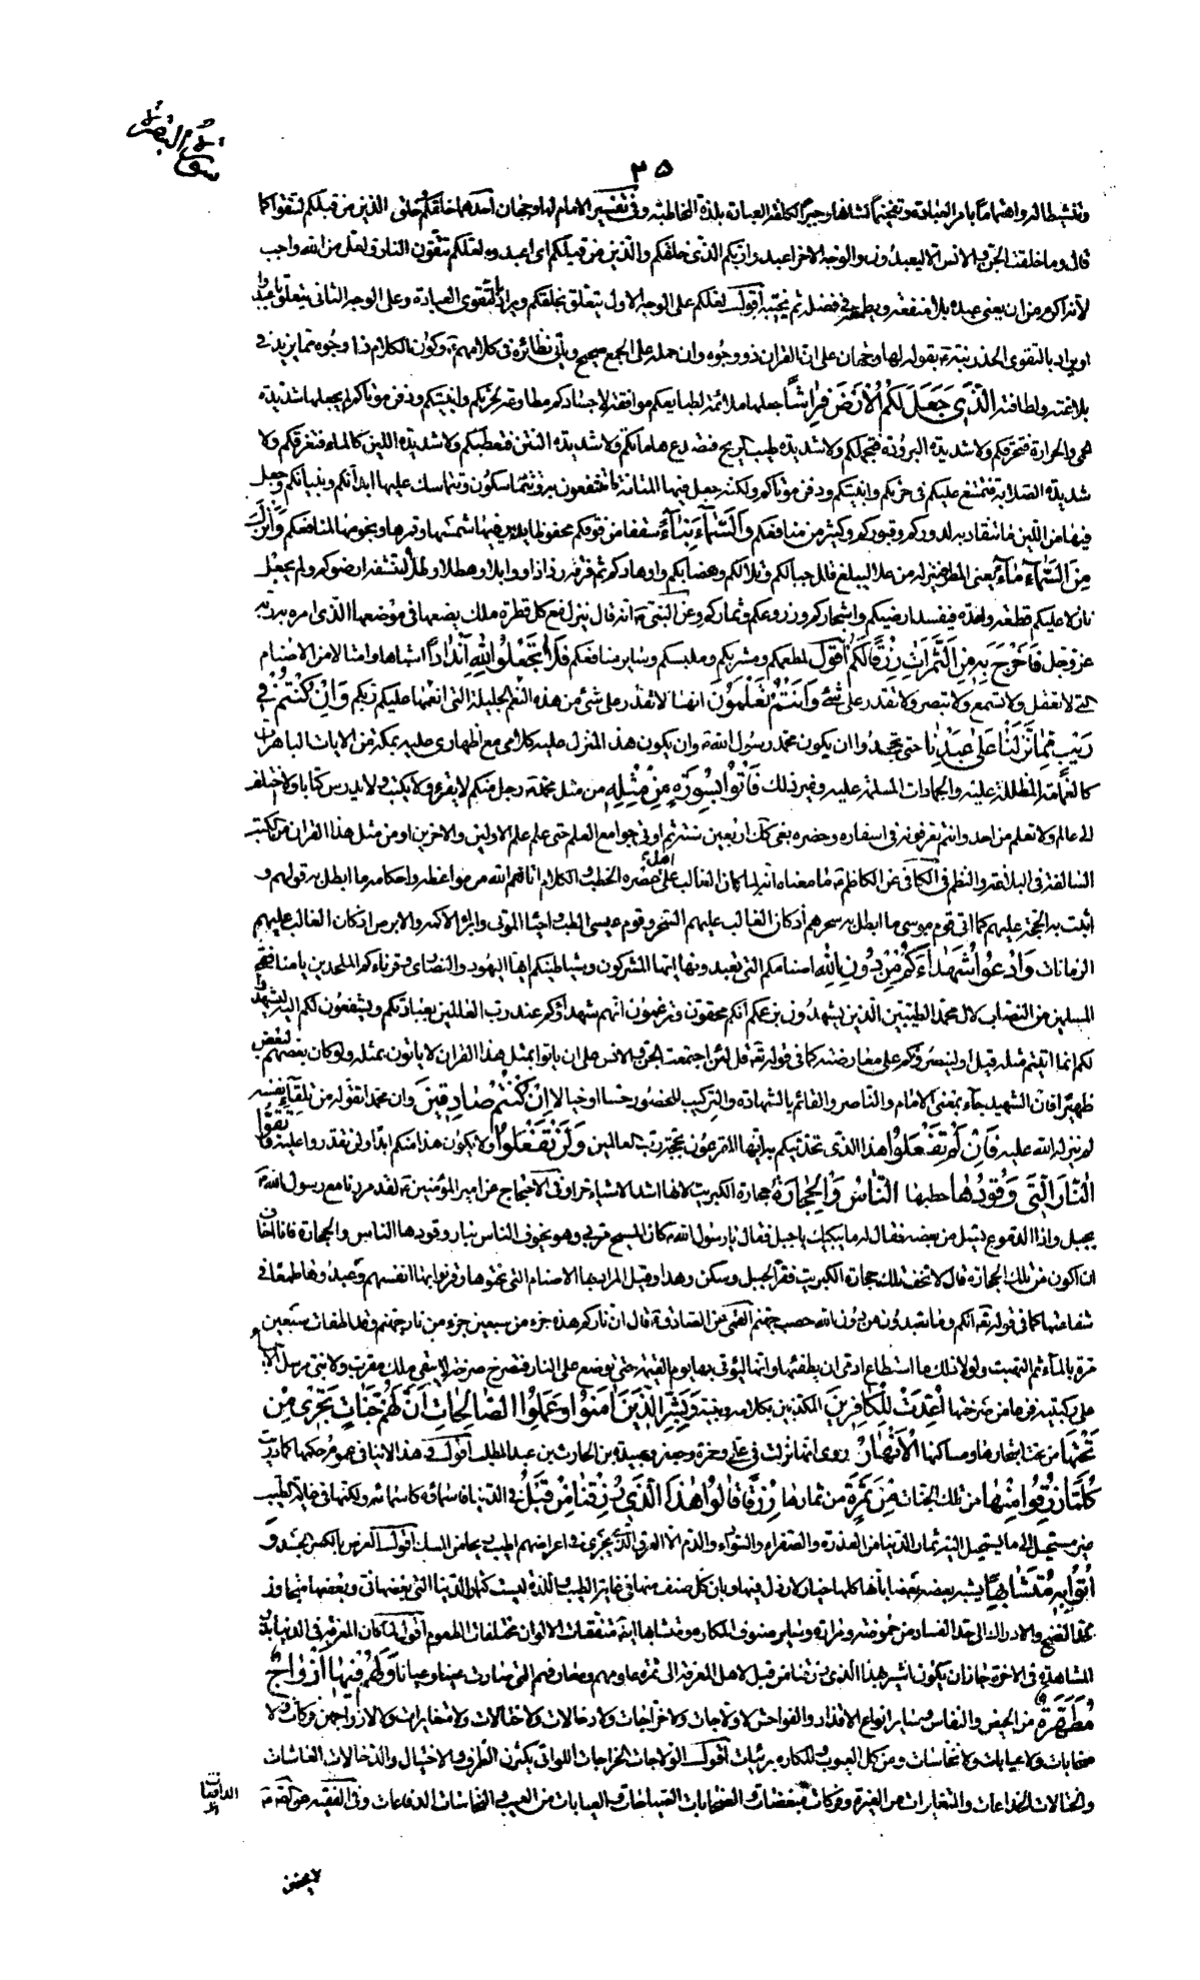 سورة البقرة
٣٥
وتنشيطا له واهتماما بامر العبادة وتفخيما لشانها وجبرا لكلفة العبادة بلذة المخاطبة وفي تفسير الامام لها وجهان احدهما خلقكم وخلق الذين من قبلكم لتتقوا كما
قال وما خلقت الجن والانس الا ليعبدون والوجه الاخر اعبدوا ربكم الذي خلقكم والذين من قبلكم اي اعبدوه لعلكم تتقون النار ولعل من الله واجب
لانه اكرم من ان يعنى عبده بلا منفعة ويطمعه في فضله ثم يخيبه اقول لعلكم على الوجه الاول يتعلق بخلقكم ويراد بالتقوى العبادة وعلى الوجه الثاني يتعلق باعبدوا
او يراد بالتقوى الحذر بقوله لها وجهان على ان القران ذو وجوه وان حمله على الجميع صحيح وياتي نظائره في كلامهم وكون الكلام ذا وجوه مما يزيد في
بلاغته ولطافته الذي جعل لكم الارض فراشا جعلها ملائمة لطبايعكم موافقة لاجسادكم مطاوعة لحرثكم وابنيتكم ودفن موتاكم لم يجعلها شديدة
الحمى والحرارة فتحرقكم ولا شديدة البرودة فتجمدكم ولا شديدة طيب الريح فتصدع هاماتكم ولا شديدة النتن فتعطبكم ولا شديدة اللين كالماء فتغرقكم ولا
شديدة الصلابة فتمتنع عليكم في حرثكم وابنيتكم ودفن موتاكم ولكنه جعل فيها من المتانة ما تنتفعون به وتتماسكون وتتماسك عليها ابدانكم وبنيانكم وجعل
فيها من اللين ما تنقاد به لدوركم وقبوركم وكثير من منافعكم والسماء بناء سقفا من فوقكم محفوظا يدير فيها شمسها وقمرها ونجومها لمنافعكم وانزل
من السماء ماء يعني المطر ينزله من علا ليبلغ قلل جبالكم وتلالكم وهضابكم واوهادكم ثم فرقه رذاذا ووابلا وهطلا وطلا لتنشفه ارضوكم ولم يجعل
نازلا عليكم قطعة واحدة فيفسد ارضيكم واشجاركم وزروعكم وثماركم وعن النبي ص انه قال ينزل مع كل قطرة ملك يضعها في موضعها الذي امره به ربه
عز وجل فاخرج به من الثمرات رزقا لكم اقول لمطعمكم ومشربكم وملبسكم وساير منافعكم فلا تجعلوا لله اندادا اشباها وامثالا من الاصنام
التي لا تعقل ولا تسمع ولا تبصر ولا تقدر على شئ وانتم تعلمون انها لا تقدر على شئ من هذه النعم الجليلة التي انعمها عليكم ربكم وان كنتم في
ريب مما نزلنا على عبدنا حتى تجحدوا ان يكون محمد رسول الله ص وان يكون هذا المنزل عليه كلامي مع اظهاري عليه بمكة من الايات الباهرات
كالغمامة المظللة عليه والجمادات المسلمة عليه وغير ذلك فاتوا بسورة من مثله من مثل محمد ص رجل منكم لا يقرء ولا يكتب ولا يدرس كتابا ولا اختلف
الى عالم ولا تعلم من احد وانتم تعرفونه في اسفاره وحضره بقي كذلك اربعين سنة ثم اوتي جوامع العلم حتى علم علم الاولين والاخرين او من مثل هذا القران من الكتب
السالفة في البلاغة والنظم في الكافي عن الكاظم ع ما معناه انه لما كان الغالب على اهل عصره الخطب والكلام اتاهم الله من مواعظه واحكامه ما ابطل به قولهم و
اثبت به الحجة عليهم كما اتى قوم موسى ما ابطل به سحرهم اذ كان الغالب عليهم السحر وقوم عيسى الطب احيا الموتى وابراء الاكمه والابرص اذ كان الغالب عليهم
الزمانات وادعوا شهداءكم من دون الله اصنامكم التي تعبدونها ايها المشركون وشياطينكم ايها اليهود والنصارى وقرناءكم الملحدين يا منافقي
المسلمين من النصاب لال محمد الطيبين الذين يشهدون بزعمكم انكم محقون وتزعمون انهم شهداؤكم عند رب العالمين بعبادتكم ويشفعون لكم اليه ليشهدوا
لكم انما اتيتم مثله قيل او لينصروكم على معارضته كما في قوله تعالى قل لئن اجتمعت الجن والانس على ان ياتوا بمثل هذا القران لا ياتون بمثله ولو كان بعضهم لبعض
ظهيرا فان الشهيد جاء بمعنى الامام والناصر والقائم بالشهادة والتركيب للحضور حسا او خيالا ان كنتم صادقين وان محمدا تقوله من تلقاء نفسه
لم ينزله الله عليه فان لم تفعلوا هذا الذي تحديتكم به ايها المقرعون بحجة رب العالمين ولن تفعلوا ولا يكون هذا منكم ابدا ولن تقدروا عليه فاتقوا
النار التي وقودها حطبها الناس والحجارة حجارة الكبريت لانها اشد الاشياء حرا وفي الاحتجاج عن امير المؤمنين ع لقد مررنا مع رسول الله ص
بجبل واذا الدموع تسيل من بعضه فقال له ما يبكيك يا جبل فقال يا رسول الله كان المسيح مر بي وهو يخوف الناس بنار وقودها الناس والحجارة فانا اخاف
ان اكون من تلك الحجارة قال لا تخف تلك حجارة الكبريت فقر الجبل وسكن وهدا وقيل المراد بها الاصنام التي نحتوها وقرنوا بها انفسهم وعبدوها طمعا في
شفاعتها كما في قوله تعالى انكم وما تعبدون من دون الله حصب جهنم القمي عن الصادق ع قال ان ناركم هذه جزء من سبعين جزء من نار جهنم وقد اطفات سبعين
مرة بالماء ثم التهبت ولولا ذلك ما استطاع ادمي ان يطفئها وانها ليؤتى بها يوم القيمة حتى توضع على النار فتصرخ صرخة لا يبقى ملك مقرب ولا نبي مرسل الا جثا
على ركبتيه فزعا من صرختها اعدت للكافرين المكذبين بكلامه ونبيه وبشر الذين امنوا وعملوا الصالحات ان لهم جنات تجري من
تحتها من تحت اشجارها ومساكنها الانهار روى انها نزلت في علي وحمزة وجعفر وعبيدة بن الحارث بن عبد المطلب اقول هذا لا ينافي عموم حكمها كما دريت
كلما رزقوا منها من تلك الجنات من ثمرة من ثمارها رزقا قالوا هذا الذي رزقنا من قبل في الدنيا فاسمائه كاسمائه ولكنها في غاية الطيب
غير مستحيل الى ما يستحيل اليه ثمار الدنيا من العذرة والصفراء والسوداء والدم الا العرق الذي يجري في اعراضهم اطيب رايحة من المسك اقول العرض بالكسر الجسد و
اتوا به متشابها يشبه بعضه بعضا بانها كلها خيار لا رذل فيها وبان كل صنف منها في غاية الطيب واللذة ليست كثمار الدنيا التي بعضها نئ وبعضها متجاوز
لحد النضج والادراك الى حد الفساد من حموضة ومرارة وساير صنوف المكاره ومتشابها ايضا متفقات الالوان مختلفات الطعوم اقول لما كان المعرفة في الدنيا بذر
المشاهدة في الاخرة جاز ان يكون اشير هذا الذي رزقنا من قبل لاهل المعرفة الى ثمرة علومهم ومعارفهم التي صارت عينا وعيانا ولهم فيها ازواج
مطهرة من الحيض والنفاس وساير انواع الاقذار والفواحش لا ولاجات ولا خراجات ولا دخالات ولا ختالات ولا متغايرات ولا لازواجهن فركات ولا
صخابات ولا عيابات ولا نخاسات ومن كل العيوب والمكاره بريات اقول الولاجات الخراجات اللواتي يكثرن الطرف والاختيال والدخالات الغاشات
والختالات الخداعات والمتغايرات من الغيرة وفركات مبغضات والصخابات الصياحات والعيابات من العيب والنخاسات الدفاعات وفي الفقيه عن الصادق ع